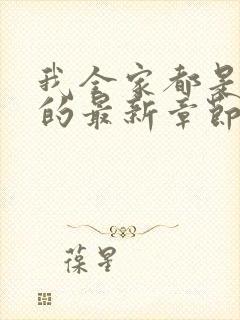 我全家都是
的最新章节
葆星